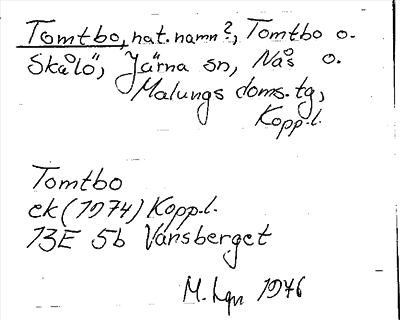 Tomtbo, nat. namn?, Tomtbo o.
Skålö, Järna sn, Nås o.
Malungs doms. tg,
Kopp.l.
Tomtbo
ek (1974) Kopp.l.
13E 5b Vansberget
M. Lgn 1976